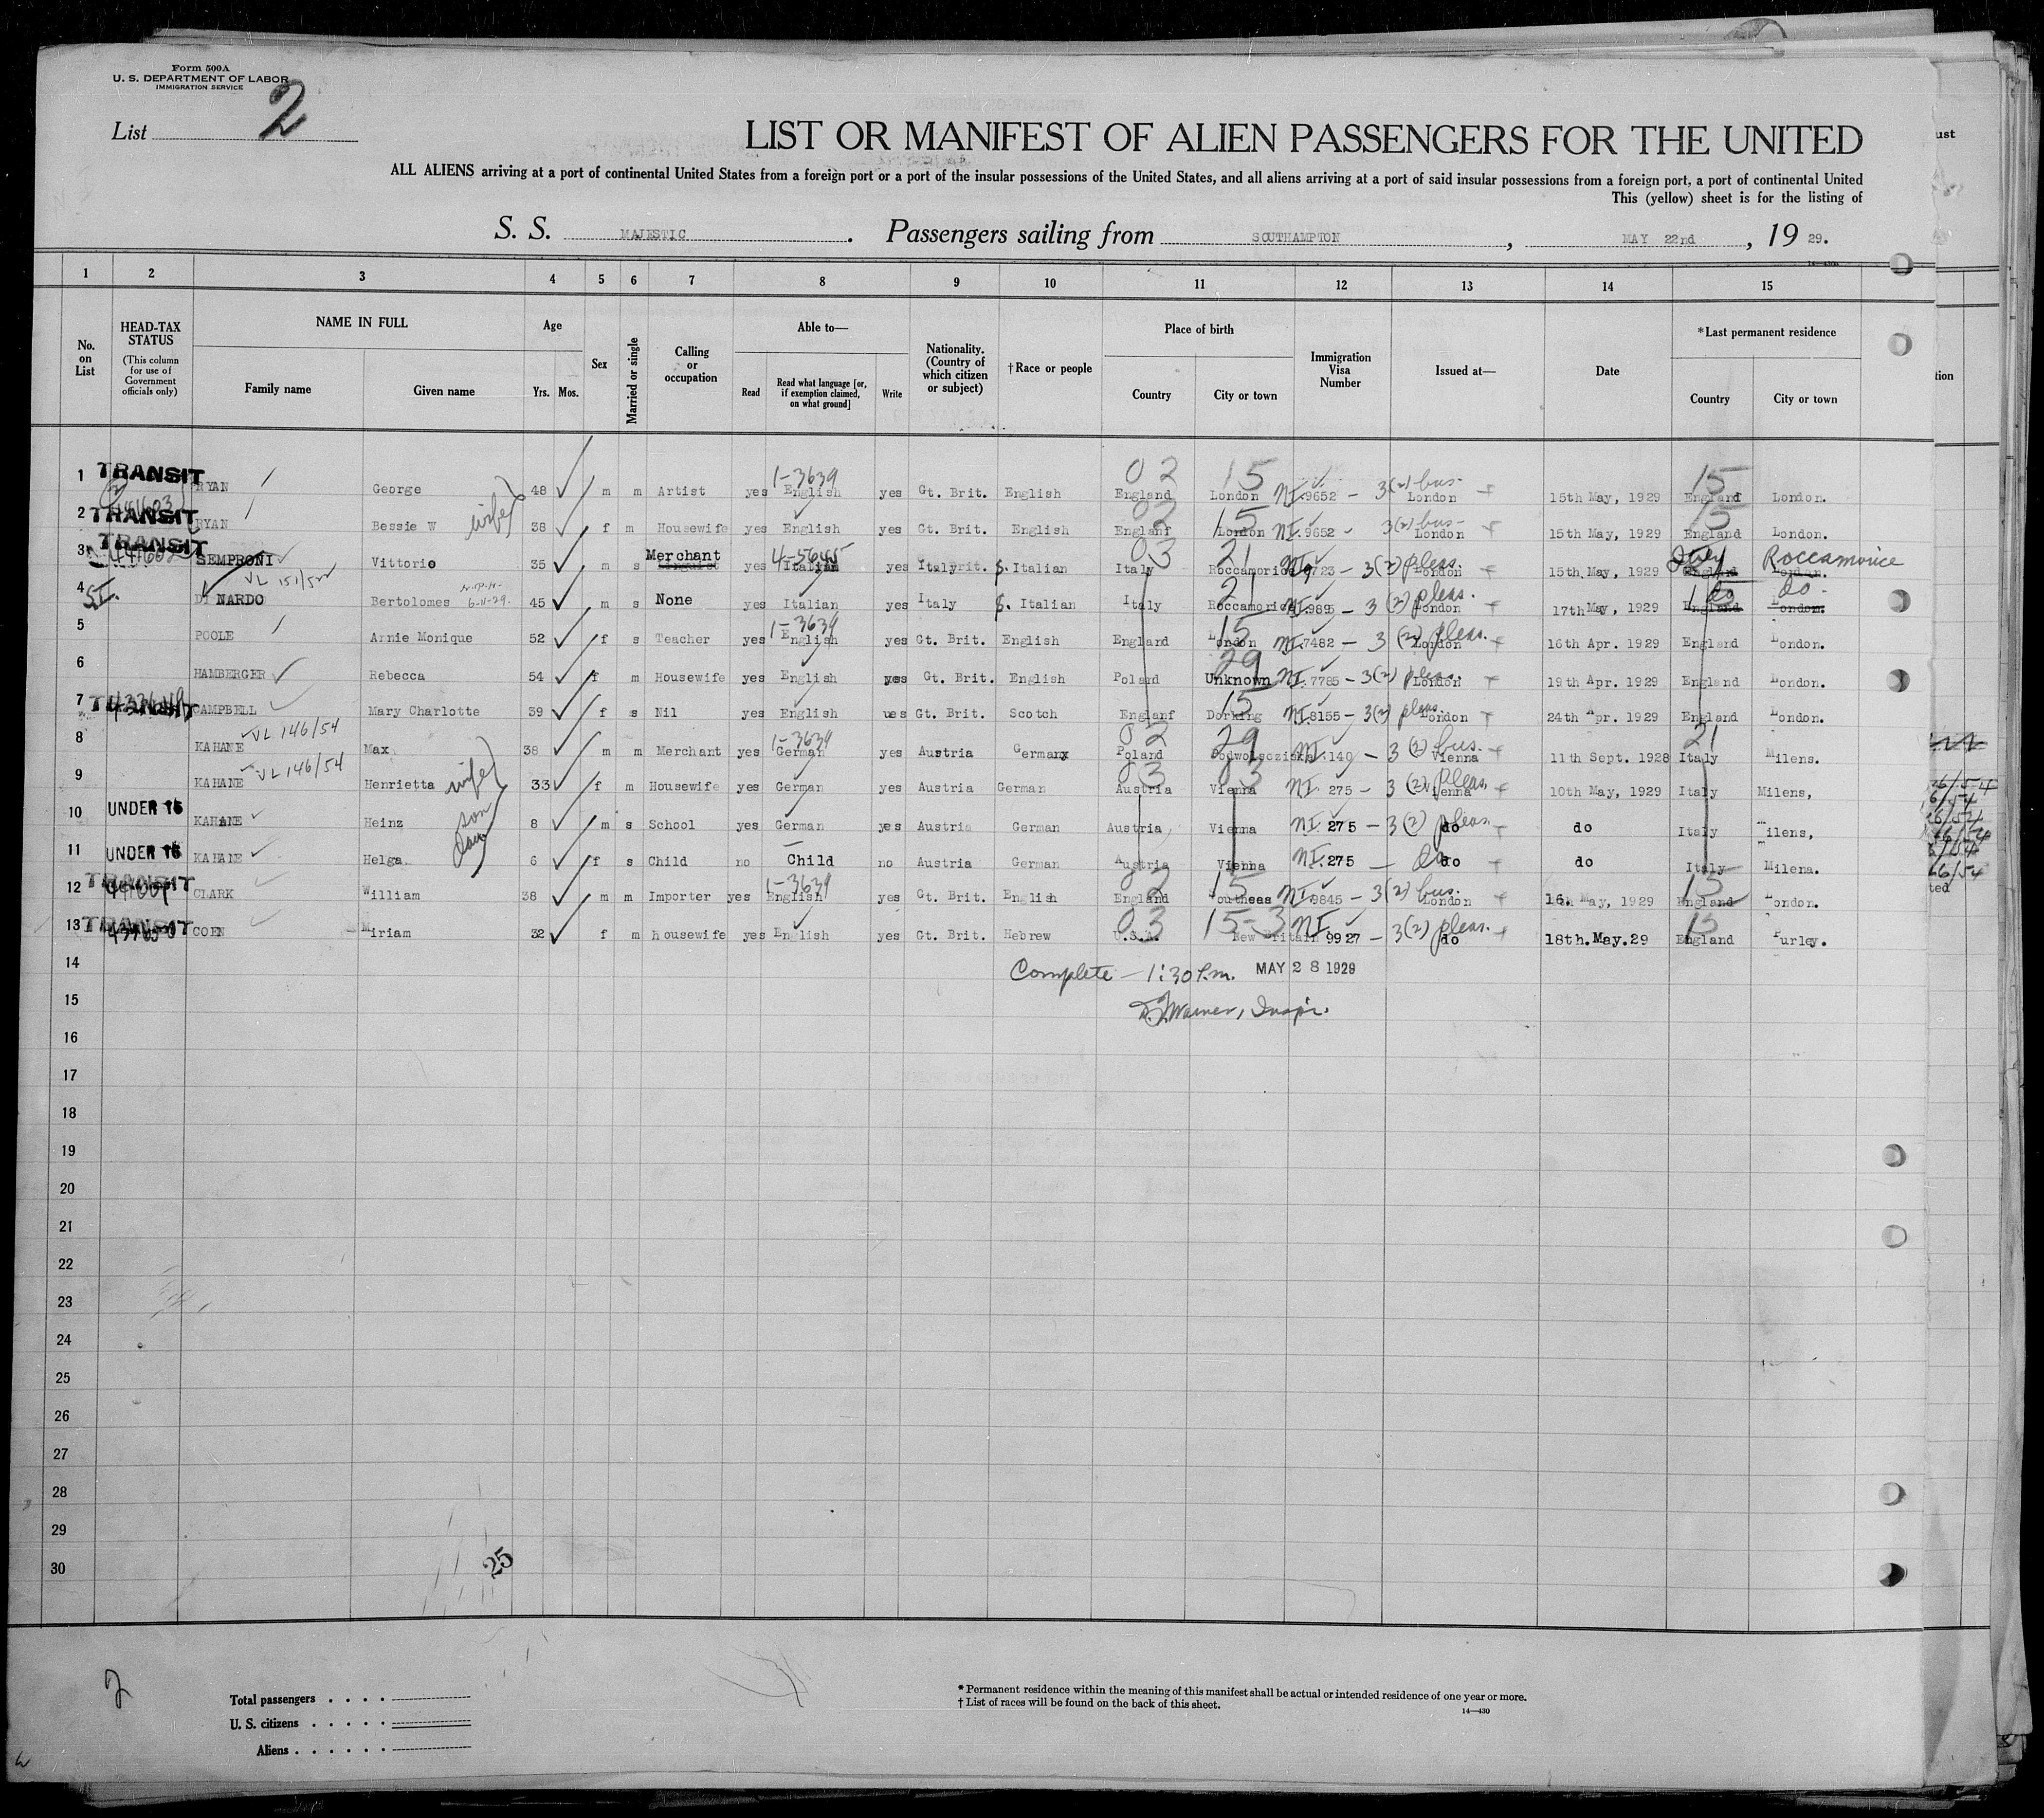 Form 500A
U. S. DEPARTMENT OF LABOR
IMMIGRATION SERVICE
List 2
LIST OR MANIFEST OF ALIEN PASSENGERS FOR THE UNITED
ALL ALIENS arriving at a port of continental United States from a foreign port or a port of the insular possessions of the United States, and all aliens arriving at a port of said insular possessions from a foreign port, a port of continental United
This (yellow) sheet is for the listing of
S. S. MAJESTIC. Passengers sailing from SOUTHAMPTON, MAY 22nd, 19 29.
1 2 3 4 5 6 7 8 9 10 11 12 13 14 15
No. on List
HEAD-TAX STATUS
(This column for use of Government officials only)
NAME IN FULL
Family name Given name
Age
Yrs. Mos.
Sex
Married or single
Calling or occupation
Able to—
Read Read what language [or, if exemption claimed, on what ground] Write
Nationality. (Country of which citizen or subject)
†Race or people
Place of birth
Country City or town
Immigration Visa Number
Issued at—
Date
*Last permanent residence
Country City or town
1 TRANSIT RYAN George 48 m m Artist yes 1-3639 English yes Gt. Brit. English 02 England 15 London NI.9652 – 3(2) bus. London 15th May, 1929 15 England London.
2 TRANSIT RYAN Bessie W wife 38 f m Housewife yes English yes Gt. Brit. English 02 Englanf 15 London NI.9652 – 3(2) bus– London 15th May, 1929 15 England London.
3 TRANSIT SEMPRONI Vittorio 35 m s Merchant yes 4-5645 Italian yes Italyrit. S. Italian 03 Italy 21 Roccamorice 9723 – 3(2) pleas. London 15th May, 1929 Italy England Roccamorice London.
4 Di NARDO VL 151/522 Bertolomes 6-11-29. 45 m s None yes Italian yes Italy S. Italian Italy 21 Roccamorice NI.9895 – 3(2) pleas. London 17th May, 1929 do England do. London.
5 POOLE Annie Monique 52 f s Teacher yes 1-3639 English yes Gt. Brit. English England 15 London NI.7482 – 3(2) pleas. London 16th Apr. 1929 England London.
6 HAMBERGER Rebecca 54 f m Housewife yes English yes Gt. Brit. English Poland 29 Unknown NI.7785 – 3(2) pleas. London 19th Apr. 1929 England London.
7 TRANSIT CAMPBELL Mary Charlotte 39 f s Nil yes English ues Gt. Brit. Scotch Englanf 15 Dorking NI.8155 – 3(2) pleas. London 24th Apr. 1929 England London.
8 KAHANE VL 146/54 Max 38 m m Merchant yes 1-3639 German yes Austria Germanx 02 Poland 29 NI 140 – 3(2) bus. Vienna 11th Sept. 1928 21 Italy Milens.
9 KAHANE VL 146/54 Henrietta wife 33 f m Housewife yes German yes Austria German 03 Austria 03 Vienna NI. 275 – 3(2) pleas. Vienna 10th May, 1929 Italy Milens,
10 UNDER 16 KAHANE Heinz son 8 m s School yes German yes Austria German Austria Vienna NI. 275 – 3(2) pleas. do do Italy ilens,
11 UNDER 16 KAHANE Helga 6 f s Child no Child no Austria German Austria Vienna NI.275 – do do do Italy Milena.
12 TRANSIT CLARK William 38 m m Importer yes 1-3639 English yes Gt. Brit. English 02 England 15 Southsea NI.9845 – 3(2) bus. London 16. May, 1929 15 England London.
13 TRANSIT COEN Miriam 32 f m housewife yes English yes Gt. Brit. Hebrew 03 U.S.A. 15-3 New Britain NI 9927 – 3(2) pleas. do 18th.May.29 15 England Purley.
14 Complete – 1:30 P.m. MAY 28 1929
15 Warner, Inspr.
16
17
18
19
20
21
22
23
24
25
26
27
28
29
30
25
2
Total passengers
U. S. citizens
Aliens
* Permanent residence within the meaning of this manifest shall be actual or intended residence of one year or more.
† List of races will be found on the back of this sheet.
14—430